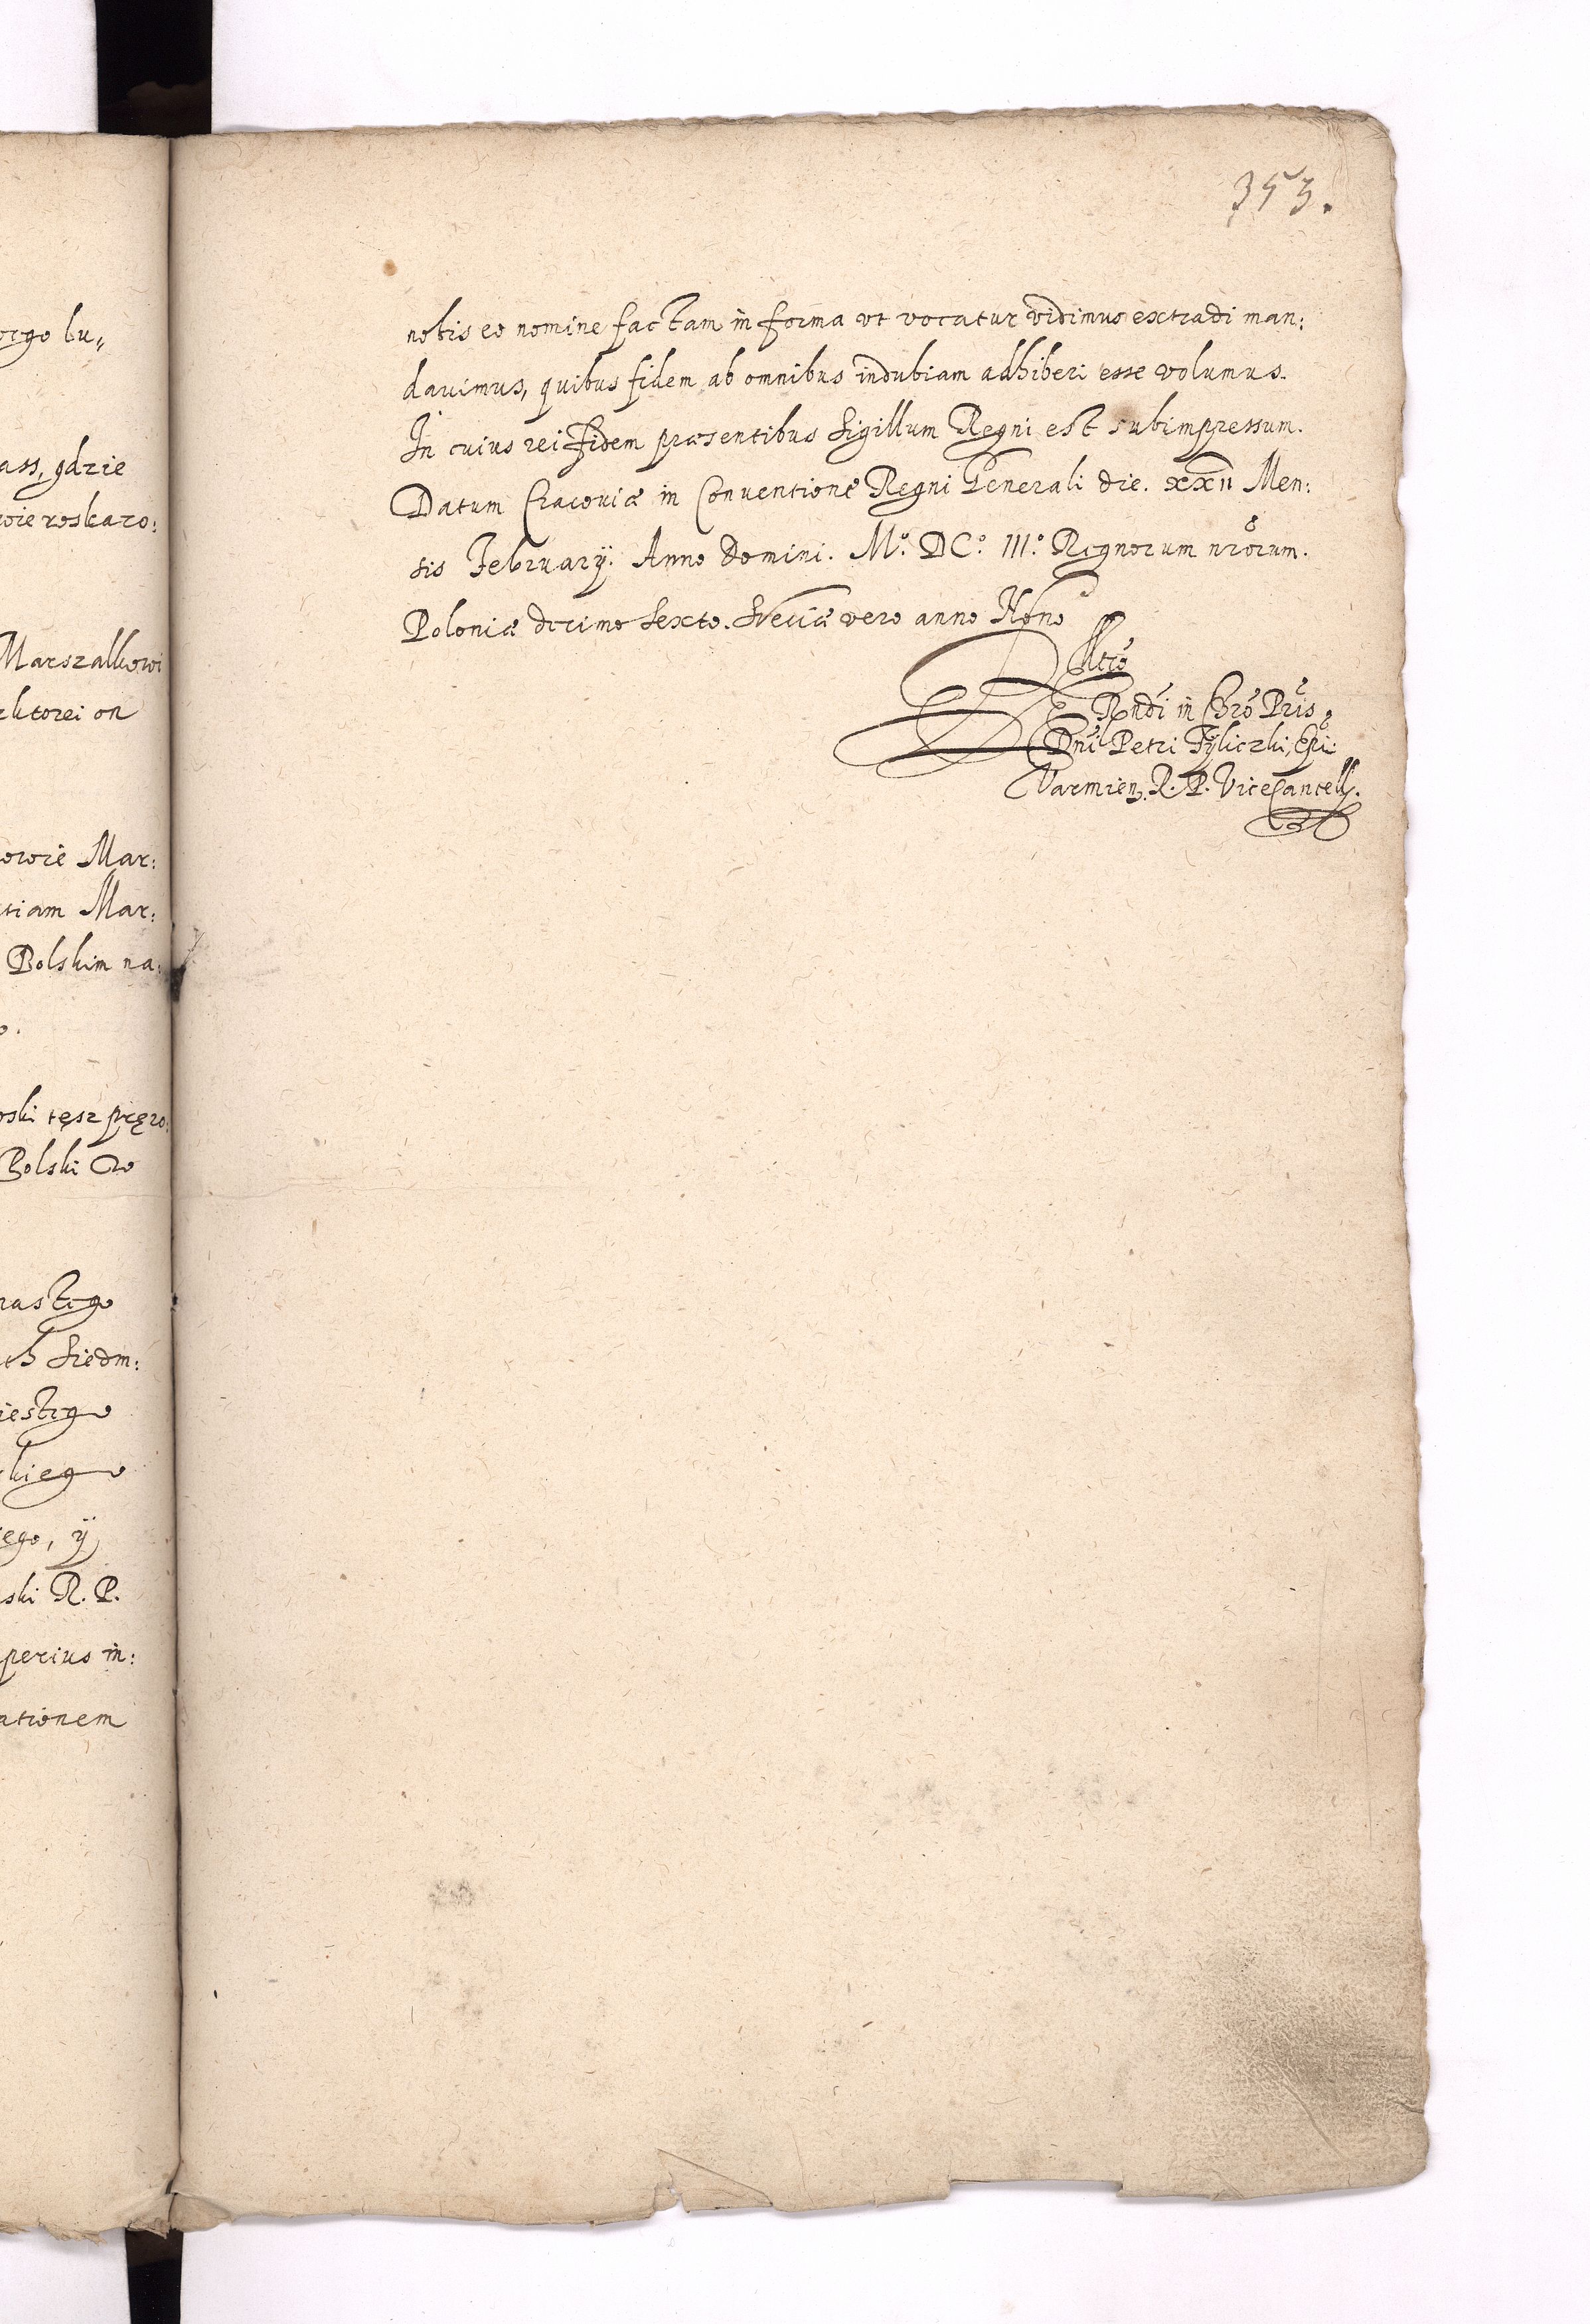 353.
orgo bu„
ass, gdzie
wie roskazo:
Marszalkowi
ktorei on
owie Mar:
tiam Mar:
Polskim na:
o.
oski tesz pręzo:
Polski Do
nastego
ch Siedm:
iestego
skiego
iego, ÿ
ski R. P.
perius in:
ationem
nobis eo nomine factam in forma vt vocatur vidimus extradi man:
dauimus, quibus fidem ab omnibus indubiam adhiberi esse volumus.
In cuius rei fidem præsentibus Sigillum Regni est subimpressum.
Datum Cracouiæ in Conuentione Regni Generali die. xxII Men:
sis February. Anno Domini. Mº. DCº. IIIº. Regnorum nrorum.
Poloniæ decimo Sexto. Sveciæ vero anno Nono
Rndi in Chro Pris
Dni Petri Tÿliczki, Epi:
Varmien. R. P. ViceCancell.